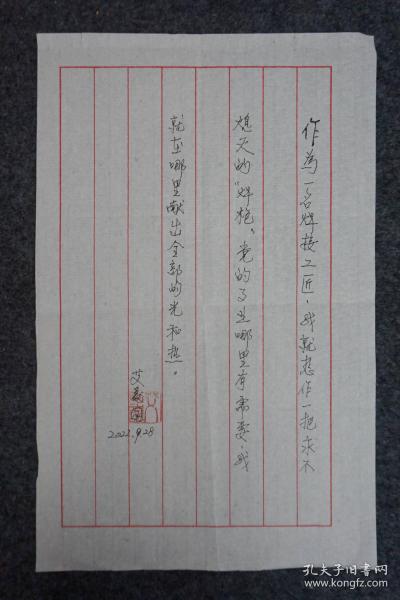 作为一名焊接工匠，我就想作一把永不
熄灭的“焊枪”，党的事业哪里有需要，我
就在哪里献出全部的光和热。
艾爱国
2022.9.28
孔夫子旧书网
www.kongfz.com